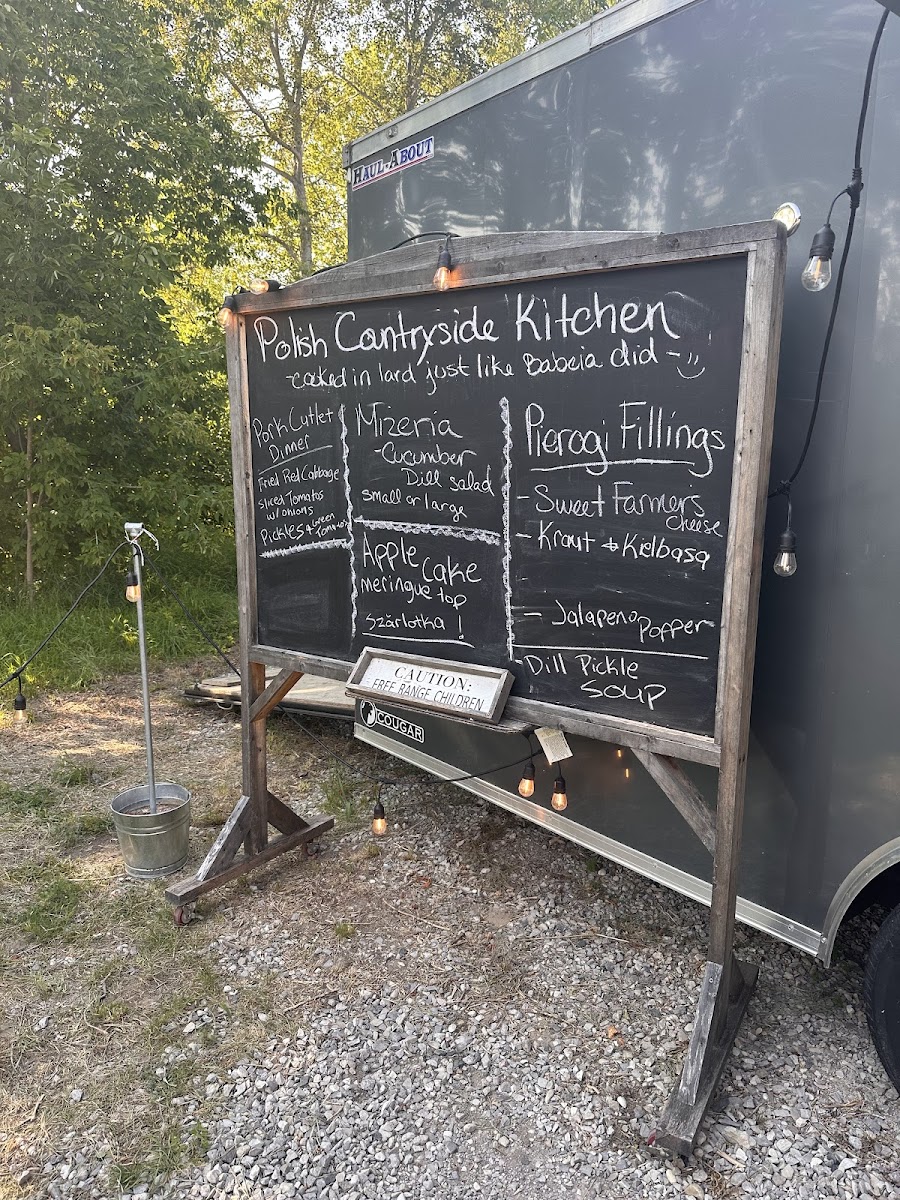 HAUL-ABOUT
Polish Countryside Kitchen
-cooked in lard just like Babcia did -
Pork Cutlet
Dinner
Fried Red Cabbage
Sliced Tomatos
w/ onions
Pickles + Green
Tomatoes
Mizeria
-Cucumber
Dill salad
small or large
Apple Cake
meringue top
Szărlotka !
Pierogi Fillings
- Sweet Farmer's
Cheese
- Kraut + Kielbasa
-
- Jalapeno Popper
Dill Pickle
Soup
CAUTION:
FREE RANGE CHILDREN
COUGAR